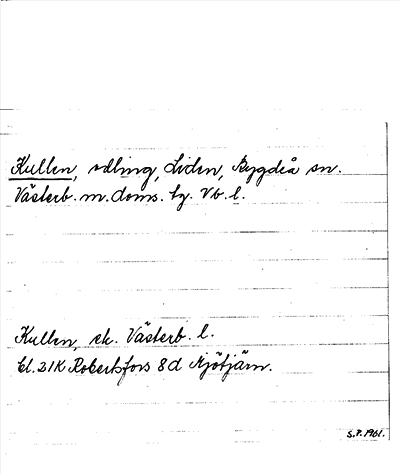 Kullen, odling, Liden, Bygdeå sn.
Västerb. m. doms. tg. Vb. l.
Kullen, ek. Västerb. l.
bl. 21K Robertsfors 8d Mjötjärn.
S.P. 1961.